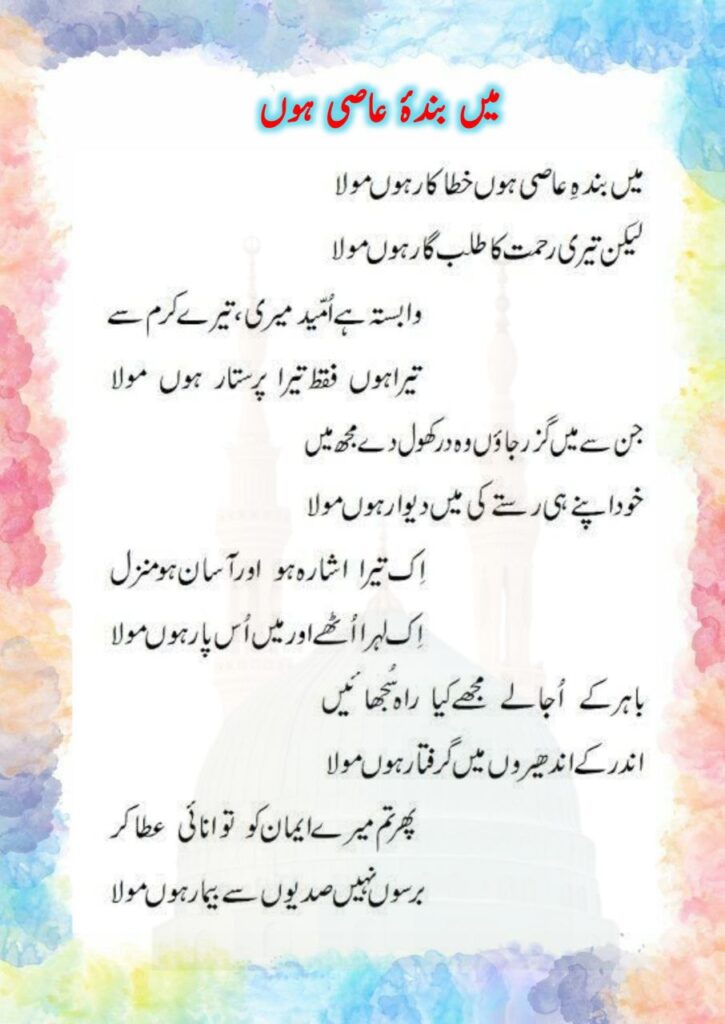 میں بندۂ عاصی ہوں
میں بندہِ عاصی ہوں خطا کار ہوں مولا
لیکن تیری رحمت کا طلب گار ہوں مولا
وابستہ ہے اُمّید میری، تیرے کرم سے
تیرا ہوں فقط تیرا پرستار ہوں مولا
جن سے میں گزر جاؤں وہ در کھول دے مجھ میں
خود اپنے ہی رستے کی میں دیوار ہوں مولا
اِک تیرا اشارہ ہو اور آسان ہو منزل
اِک لہر اُٹھے اور میں اُس پار ہوں مولا
باہر کے اُجالے مجھے کیا راہ سُجھائیں
اندر کے اندھیروں میں گرفتار ہوں مولا
پھر تم میرے ایمان کو توانائی عطا کر
برسوں نہیں صدیوں سے بیمار ہوں مولا